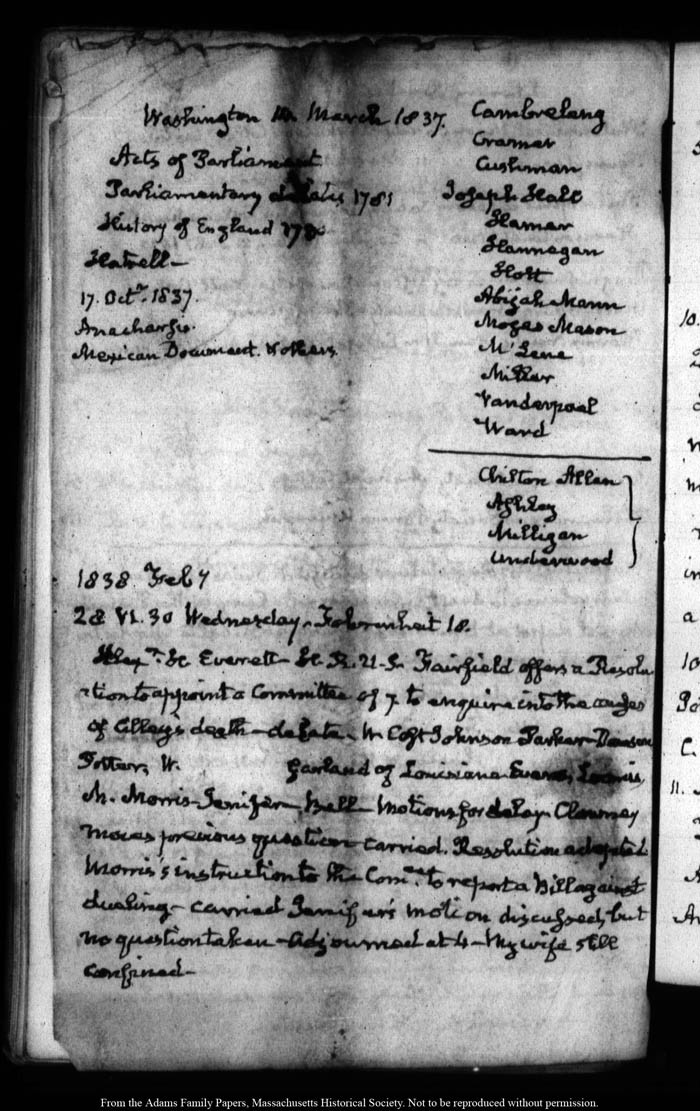 Washington March 1837.
Acts of Parliament
Parliamentary debates 1781
History of England
Hatsell—
17. Octr. 1837.
Anacharsis.
Mexican Document. & others
Cambreleng
Cramer
Cushman
Joseph Hall
Hamer
Hannegan
Holt
Abijah Mann
Moses Mason
McLene
Miller
Vanderpoel
Ward
Chilton Allan
Ashley
Milligan
Underwood
1838 Feby
28 VI.30 Wednesday. Fahrenheit 18.
Everett— H. R. U.S. Fairfield offers a Resolu
tion to appoint a Committee of 7 to enquire into the causes
of Cilley's death—debate. W Cost Johnson Parker Dawson
Potter, W. Garland of Louisiana Evans, Loomis,
M. Morris Jenifer, Bell Motions for delay. Clowney
moves previous question carried. Resolution adopted
Morris's instruction to the Comee. to report a Bill against
dueling—carried Jenifer's motion discussed, but
no question taken—Adjourned at 4—My wife still
confined—
From the Adams Family Papers, Massachusetts Historical Society. Not to be reproduced without permission.